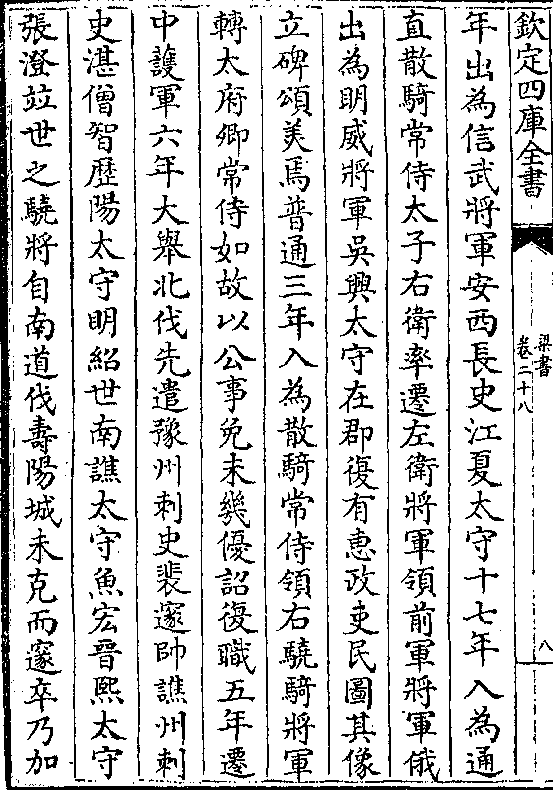 欽定四庫全書
梁書
卷二十八
八
年出為信武將軍安西長史江夏太守十七年入為通
直散騎常侍太子右衛率遷左衛將軍領前軍將軍俄
出為明威將軍吳興太守在郡復有恵政吏民圖其像
立碑頌美焉普通三年入為散騎常侍領右驍騎將軍
轉太府卿常侍如故以公事免未幾優詔復職五年遷
中護軍六年大舉北伐先遣豫州刺史裴邃帥譙州刺
史湛僧智歴陽太守明紹世南譙太守魚宏晉熙太守
張澄竝世之驍將自南道伐壽陽城未克而邃卒乃加